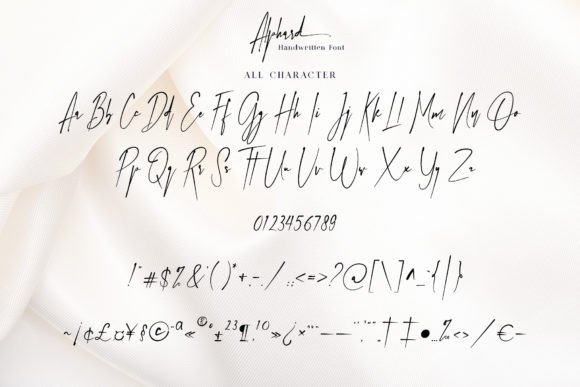 Alphard
Handwritten Font
ALL CHARACTER
Aa Bb Cc Dd Ee Ff Gg Hh Ii Jj Kk Ll Mm Nn Oo
Pp Qq Rr Ss Tt Uu Vv Ww Xx Yy Zz
0123456789
!"#$%&'()*+,-./:;<=>?@[\]^_`{|}
~¡¢£¤¥§©-a«®°±23¶,10»¿×
†‡•…‰<>/€−